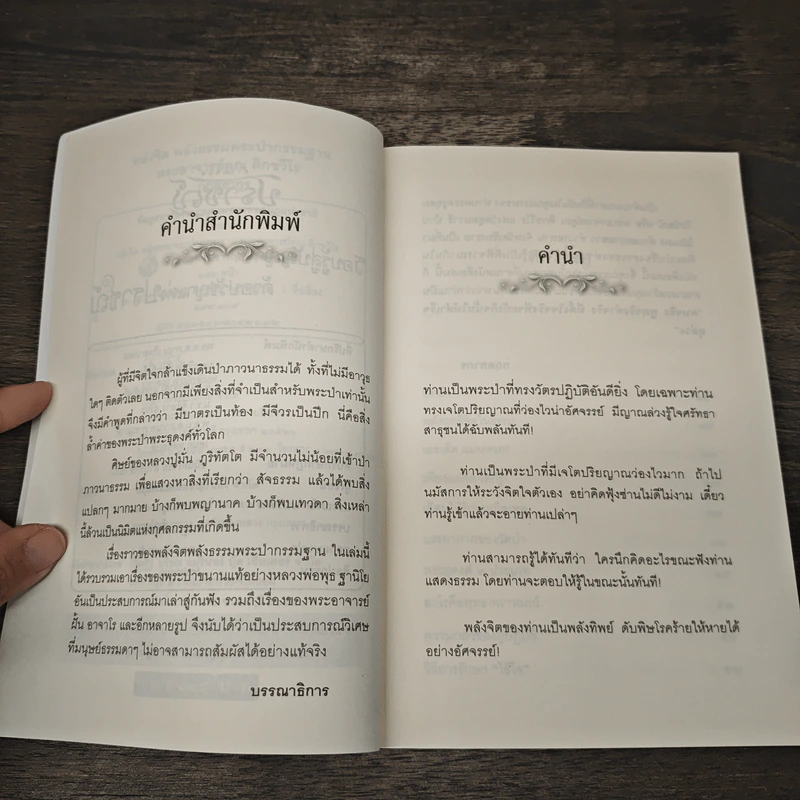 คำนำสำนักพิมพ์
ผู้ที่มีจิตใจกล้าแข็งเดินป่าภาวนาธรรมได้ ทั้งที่ไม่มีอาวุธ
ใดๆ ติดตัวเลย นอกจากมีเพียงสิ่งที่จำเป็นสำหรับพระป่าเท่านั้น
จึงมีคำพูดที่กล่าวว่า มีบาตรเป็นท้อง มีจีวรเป็นปีก นี่คือสิ่ง
ล้ำค่าของพระป่าพระธุดงค์ทั่วโลก
ศิษย์ของหลวงปู่มั่น ภูริทัตโต มีจำนวนไม่น้อยที่เข้าป่า
ภาวนาธรรม เพื่อแสวงหาสิ่งที่เรียกว่า สัจธรรม แล้วได้พบสิ่ง
แปลกๆ มากมาย บ้างก็พบพญานาค บ้างก็พบเทวดา สิ่งเหล่า
นี้ล้วนเป็นนิมิตแห่งกุศลกรรมที่เกิดขึ้น
เรื่องราวของพลังจิตพลังธรรมพระป่ากรรมฐาน ในเล่มนี้
ได้รวบรวมเอาเรื่องของพระป่าขนานแท้อย่างหลวงพ่อพุธ ฐานิโย
อันเป็นประสบการณ์มาเล่าสู่กันฟัง รวมถึงเรื่องของพระอาจารย์
ฝั้น อาจาโร และอีกหลายรูป จึงนับได้ว่าเป็นประสบการณ์วิเศษ
ที่มนุษย์ธรรมดาๆ ไม่อาจสามารถสัมผัสได้อย่างแท้จริง
บรรณาธิการ
คำนำ
ท่านเป็นพระป่าที่ทรงวัตรปฏิบัติอันดียิ่ง โดยเฉพาะท่าน
ทรงเจโตปริยญาณที่ว่องไวน่าอัศจรรย์ มีญาณล่วงรู้ใจศรัทธา
สาธุชนได้ฉับพลันทันที!
ท่านเป็นพระป่าที่มีเจโตปริยญาณว่องไวมาก ถ้าไป
นมัสการให้ระวังจิตใจตัวเอง อย่าคิดฟุ้งซ่านไม่ดีไม่งาม เดี๋ยว
ท่านรู้เข้าแล้วจะอายท่านเปล่าๆ
ท่านสามารถรู้ได้ทันทีว่า ใครนึกคิดอะไรขณะฟังท่าน
แสดงธรรม โดยท่านจะตอบให้รู้ในขณะนั้นทันที!
พลังจิตของท่านเป็นพลังทิพย์ ดับพิษโรคร้ายให้หายได้
อย่างอัศจรรย์!